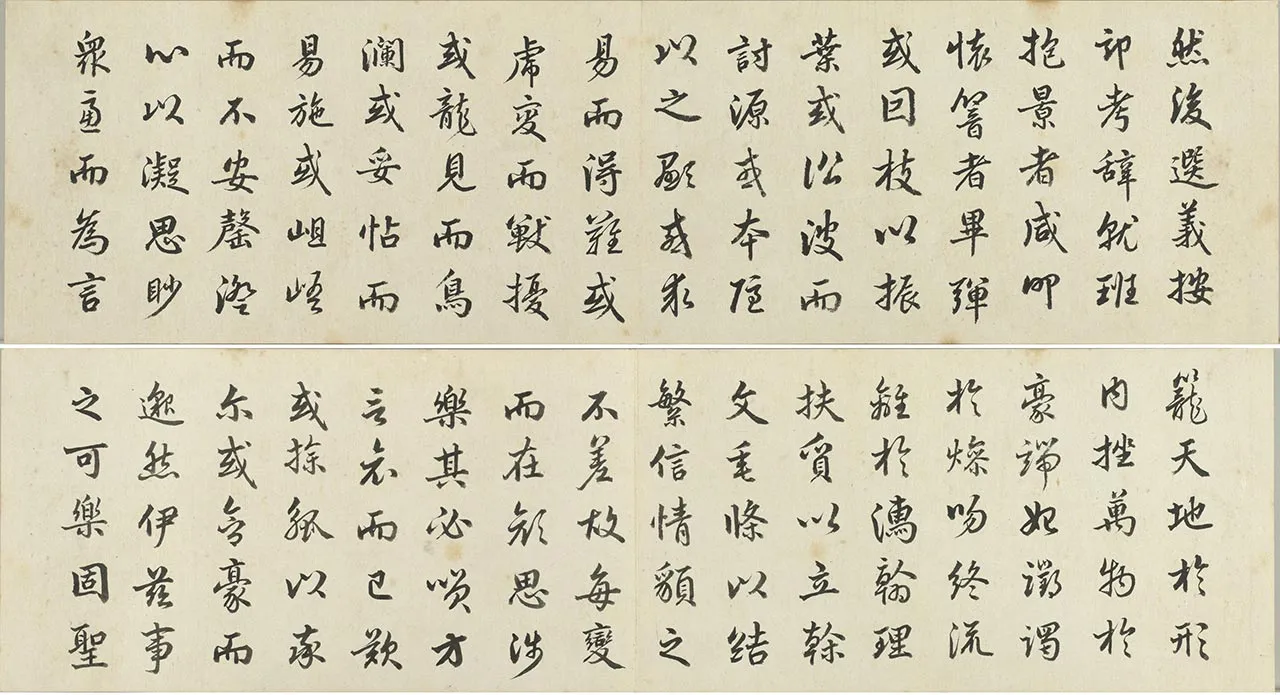 然後選義按
部考辭就班
抱景者咸叩
懷響者畢彈
或因枝以振
葉或沿波而
討源或本隱
以之顯或求
易而得難或
虎變而獸擾
或龍見而鳥
瀾或妥帖而
易施或岨峿
而不安罄澄
心以凝思眇
衆慮而為言
籠天地於形
内挫萬物於
豪端始躑躅
於燥吻終流
離於濡翰理
扶質以立榦
文垂條以結
繁信情貌之
不差故每變
而在顏思涉
樂其必笑方
言哀而已歎
或操觚以率
尔或含豪而
邈然伊茲事
之可樂固聖